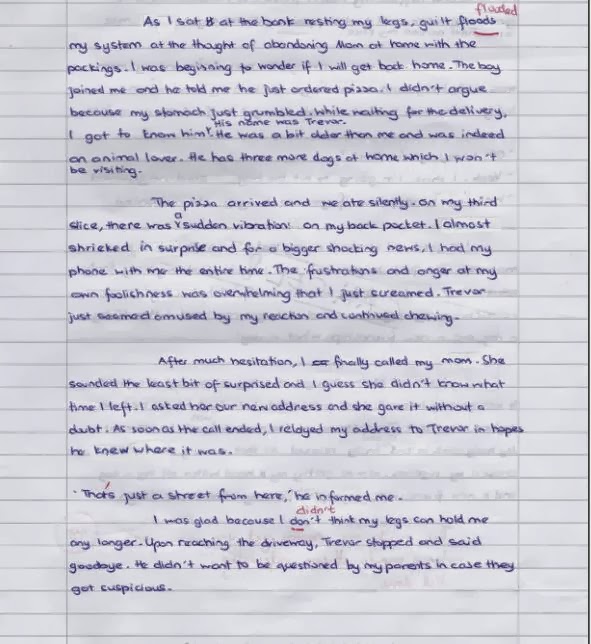 flooded
As I sat at the bank resting my legs, guilt floods
my system at the thought of abandoning Mom at home with the
packings. I was beginning to wonder if I will get back home. The boy
joined me and he told me he just ordered pizza. I didn't argue
because my stomach just grumbled. While waiting for the delivery,
His name was Trevor.
I got to know him. He was a bit older than me and was indeed
an animal lover. He has three more dogs at home which I won't
be visiting.
The pizza arrived and we ate silently. On my third
slice, there was a sudden vibration on my back pocket. I almost
shrieked in surprise and for a bigger shocking news, I had my
phone with me the entire time. The fustrations and anger at my
own foolishness was overwhelming that I just screamed. Trevor
just seemed amused by my reaction and continued chewing.
After much hesitation, I finally called my mom. She
sounded the least bit of surprised and I guess she didn't know what
time I left. I asked her our new address and she gave it without a
doubt. As soon as the call ended, I relayed my address to Trevor in hopes
he knew where it was.
'That's just a street from here,' he informed me.
didn't
I was glad because I don't think my legs can hold me
any longer. Upon reaching the driveway, Trevor stopped and said
goodbye. He didn't want to be questioned by my parents in case they
got suspicious.